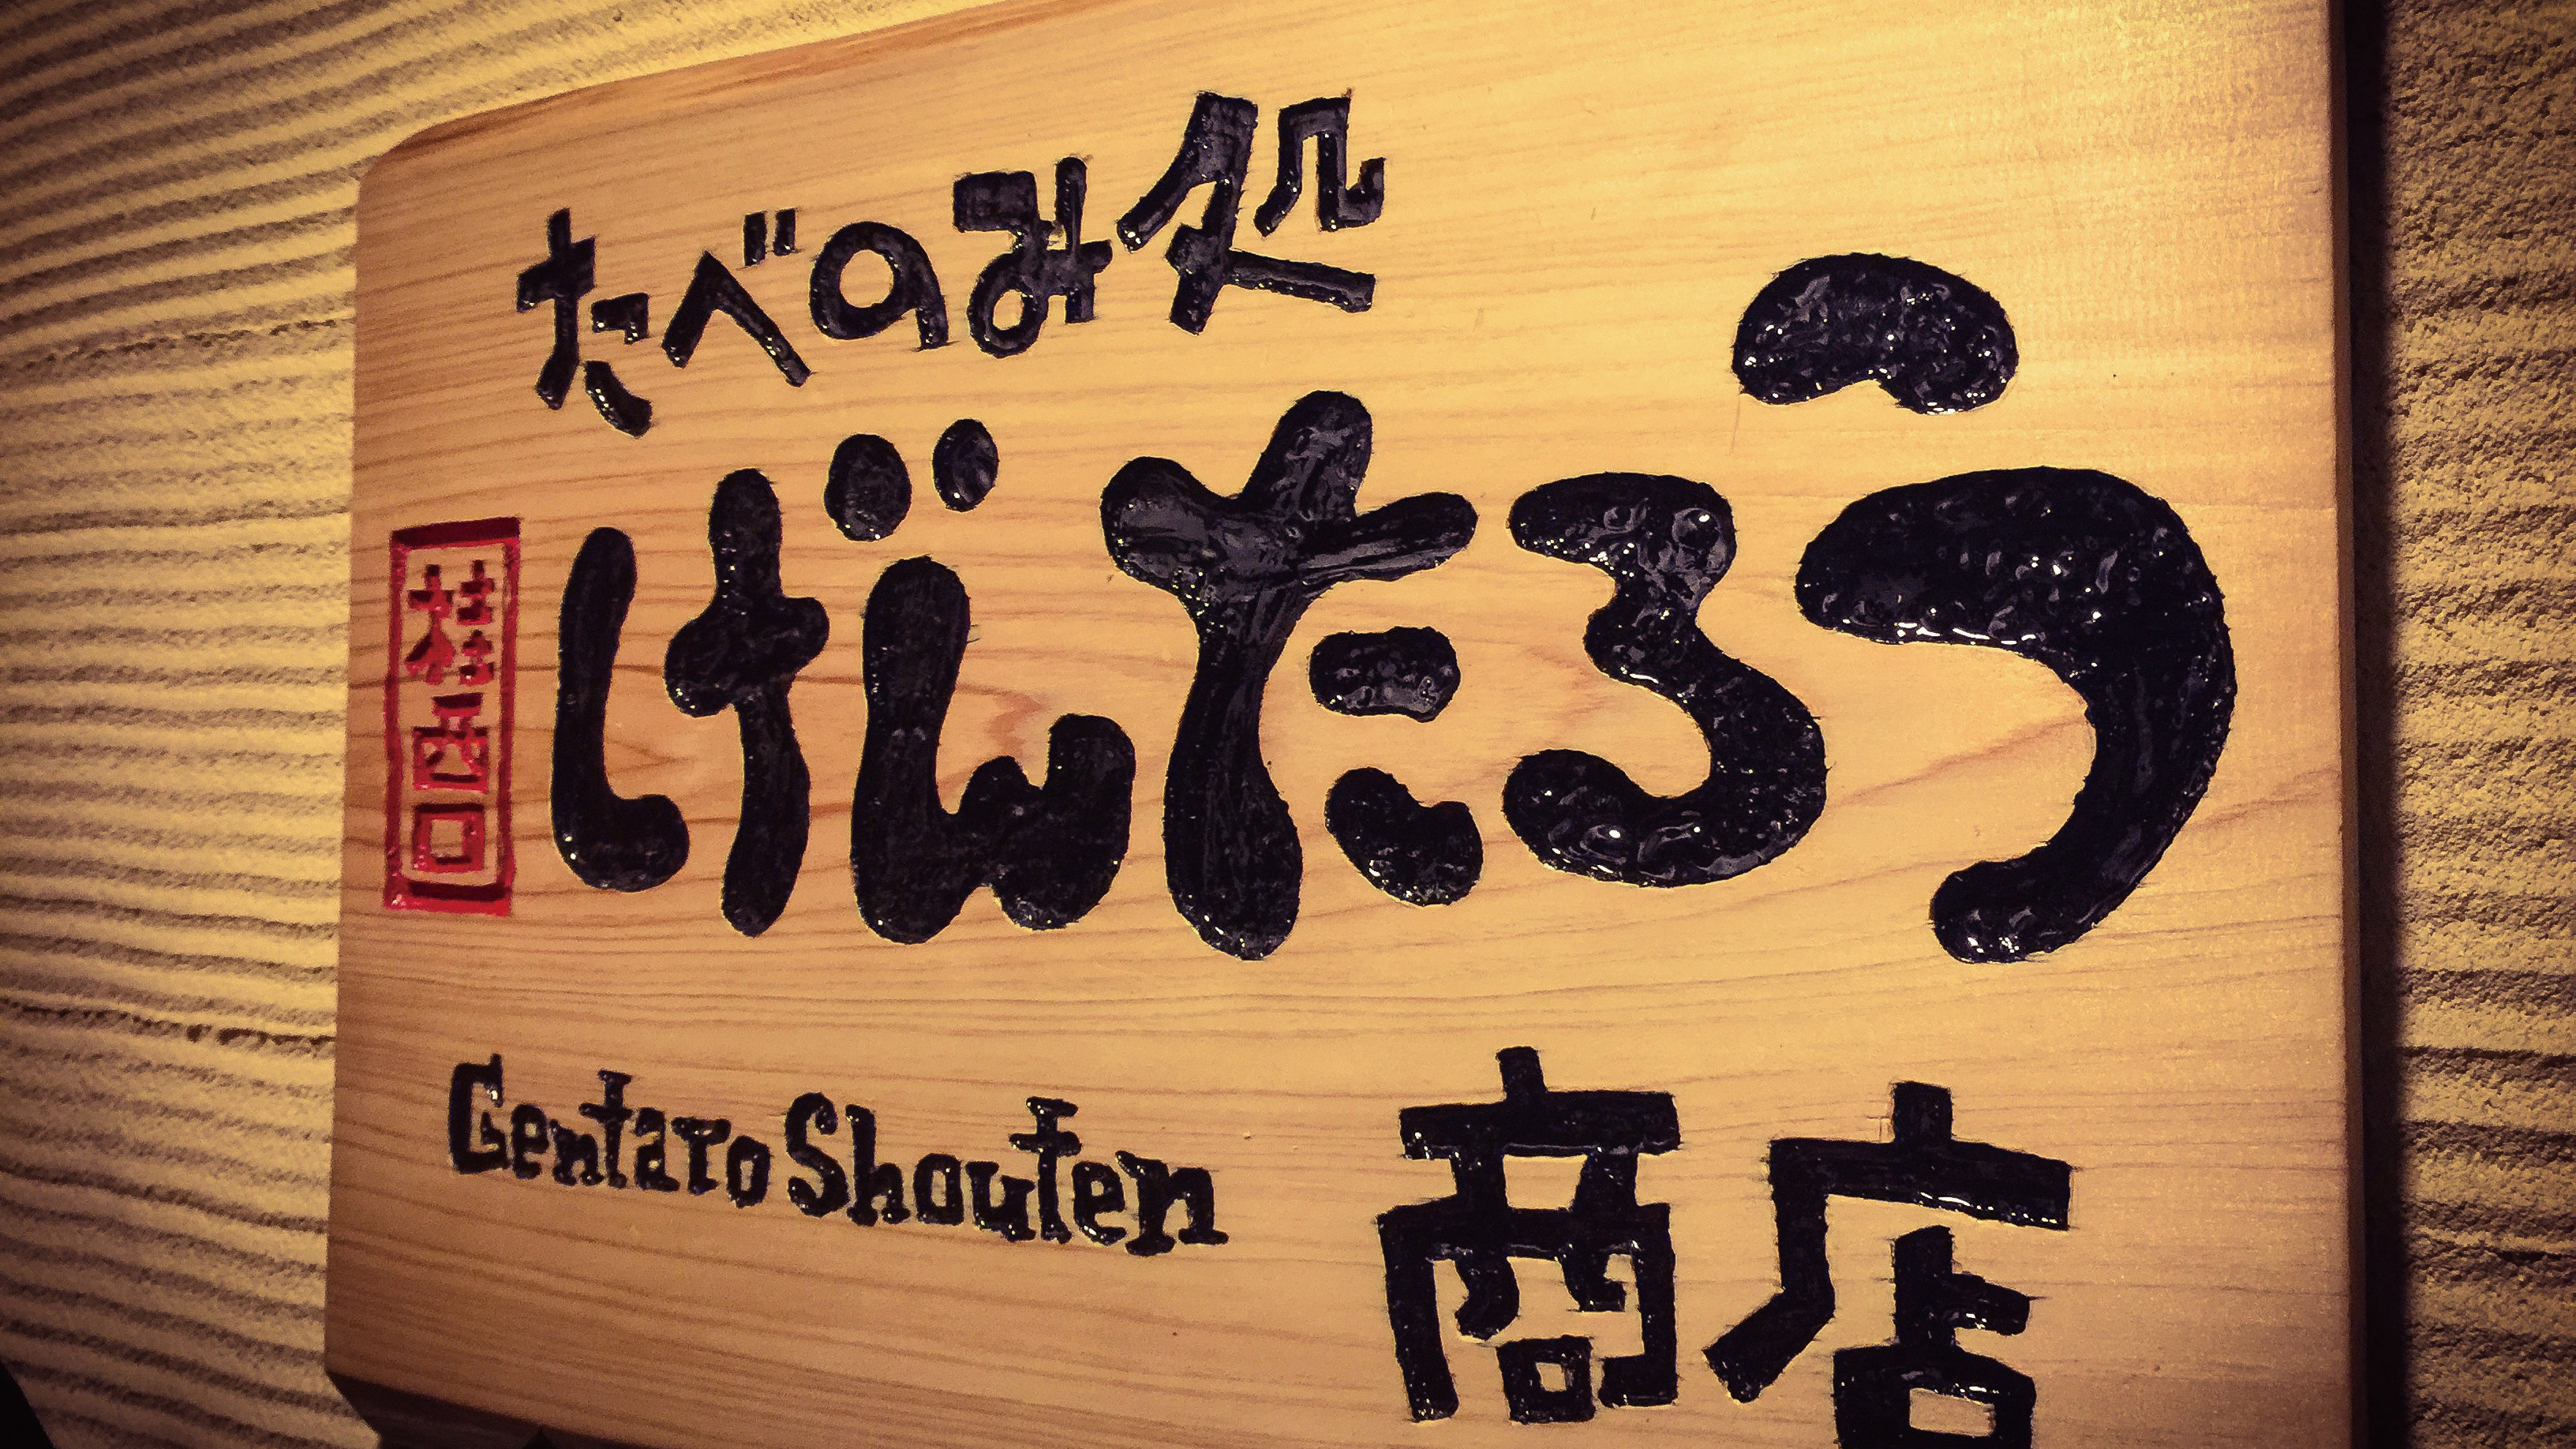 たべのみ処
げんたろう
桂西口
Gentaro Shouten
商店